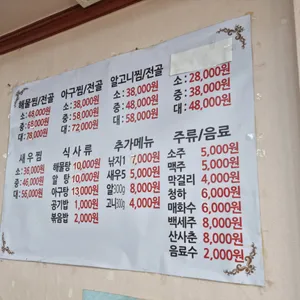 해물찜/전골
소: 48,000원
중: 58,000원
대: 78,000원
아구찜/전골
소: 38,000원
중: 58,000원
대: 72,000원
알고니찜/전골
소: 38,000원
중: 48,000원
대: 58,000원
소: 28,000원
중: 38,000원
대: 48,000원
새우찜
소: 36,000원
중: 46,000원
대: 56,000원
식사류
해물탕 10,000원
알탕 10,000원
아구탕 13,000원
공기밥 1,000원
볶음밥 2,000원
추가메뉴
낙지1 7,000원
새우5 5,000원
알300g 8,000원
고니300g 4,000원
주류/음료
소주 5,000원
맥주 5,000원
막걸리 4,000원
청하 6,000원
매화수 6,000원
백세주 8,000원
산사춘 8,000원
음료수 2,000원